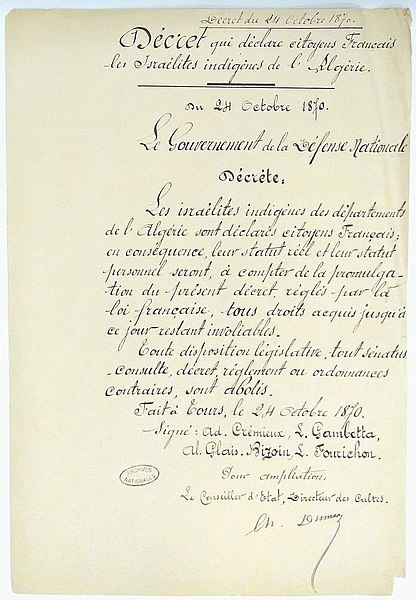 Décret du 24 Octobre 1870.
Décret qui déclare citoyens Français
les Israélites indigènes de l'Algérie.
Du 24 Octobre 1870.
Le Gouvernement de la Défense Nationale
Décrète:
Les israëlites indigènes des départements
de l'Algérie sont déclarés citoyens Français;
en conséquence, leur statut réel et leur statut
personnel seront, à compter de la promulga-
tion du présent décret, réglés par la
loi française, tous droits acquis jusqu'à
ce jour restant inviolables.
Toute disposition législative, tout sénatus
-consulte, décret, règlement ou ordonnances
contraires, sont abolis.
Fait à Tours, le 24 Octobre 1870.
Signé: Ad. Crémieux, L. Gambetta,
Al. Glais-Bizoin, L. Fourichon.
Pour ampliation,
ARCHIVES
NATIONALES
Le Conseiller d'Etat, Directeur des Cultes.